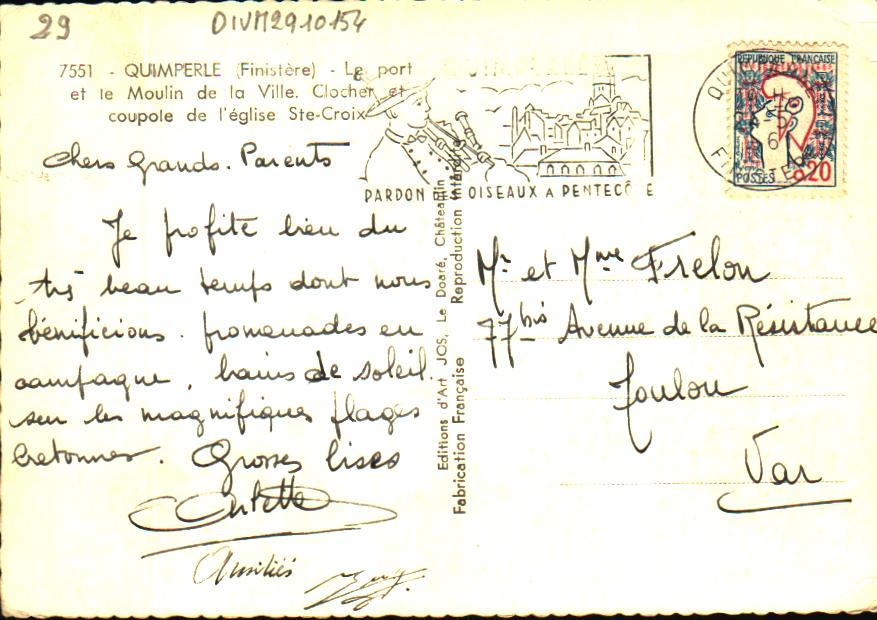 29
DIVM2910154
7551 - QUIMPERLE (Finistère) - Le port
et le Moulin de la Ville. Clocher et
coupole de l'église Ste-Croix
Chers Grands-Parents
Je profite bien du
très beau temps dont nous
bénificions. promenades en
campagne, bains de soleil
sur les magnifiques plages
bretonnes. Grosses bises
Amitiés
PARDON OISEAUX A PENTECÔ E
Editions d'Art JOS, Le Doaré, Châteaulin
Fabrication Française Reproduction Interdite
REPUBLIQUE FRANÇAISE
POSTES 0,20
Mr et Mme Frelon
77 bis Avenue de la Résistance
Toulon
Var